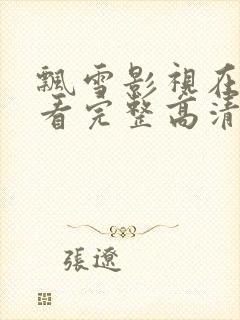 飄雪影視在
看完整高清
張遼